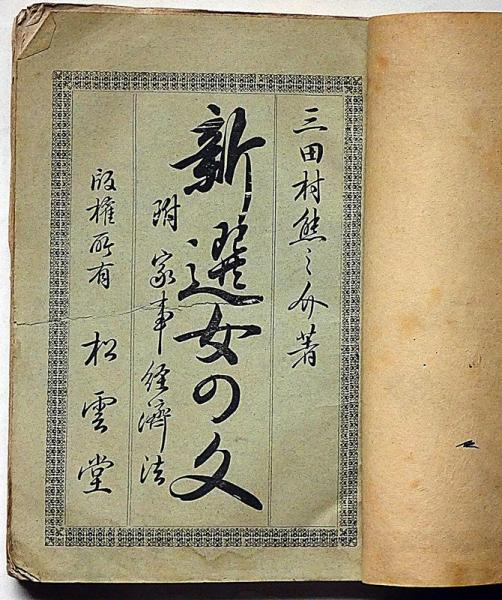 三田村熊之介著
新選女の文
附家事経済法
版権所有 松雲堂